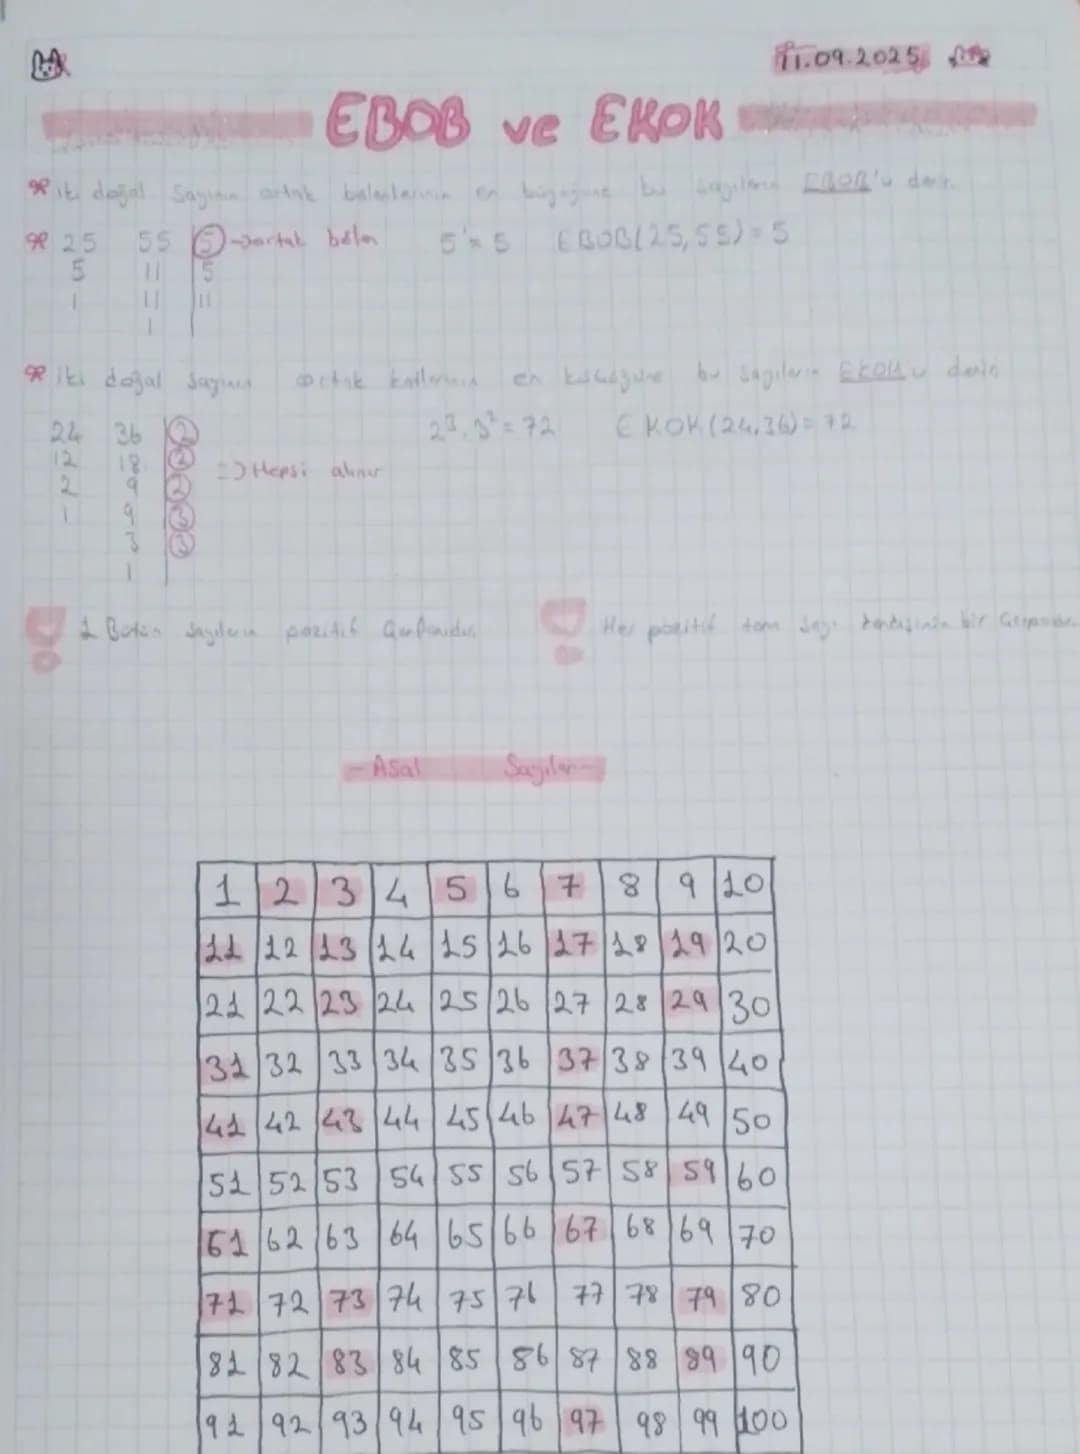 11.09.2025
EBOB ve EKOK
İki doğal Sayının ortak bölenlerinin en büyüğüne bu sayıların EBOB'u denir.
25 55 5 → ortak bölen 5¹ = 5 EBOB(25,55) = 5
5 11 5
1 11 11
1
İki doğal Sayının ortak katlarının en küçüğüne bu sayıların EKOK'u denir
24 36 2 2³.3² = 72 EKOK(24,36) = 72
12 18 2 => Hepsi alınır
2 9 2
1 9 3
3 3
1
1 Bütün sayıların pozitif Çarpanıdır.
Her pozitif tam sayı kendisinin bir Çarpanıdır.
- Asal Sayılar -
1 2 3 4 5 6 7 8 9 10
11 12 13 14 15 16 17 18 19 20
21 22 23 24 25 26 27 28 29 30
31 32 33 34 35 36 37 38 39 40
41 42 43 44 45 46 47 48 49 50
51 52 53 54 55 56 57 58 59 60
61 62 63 64 65 66 67 68 69 70
71 72 73 74 75 76 77 78 79 80
81 82 83 84 85 86 87 88 89 90
91 92 93 94 95 96 97 98 99 100